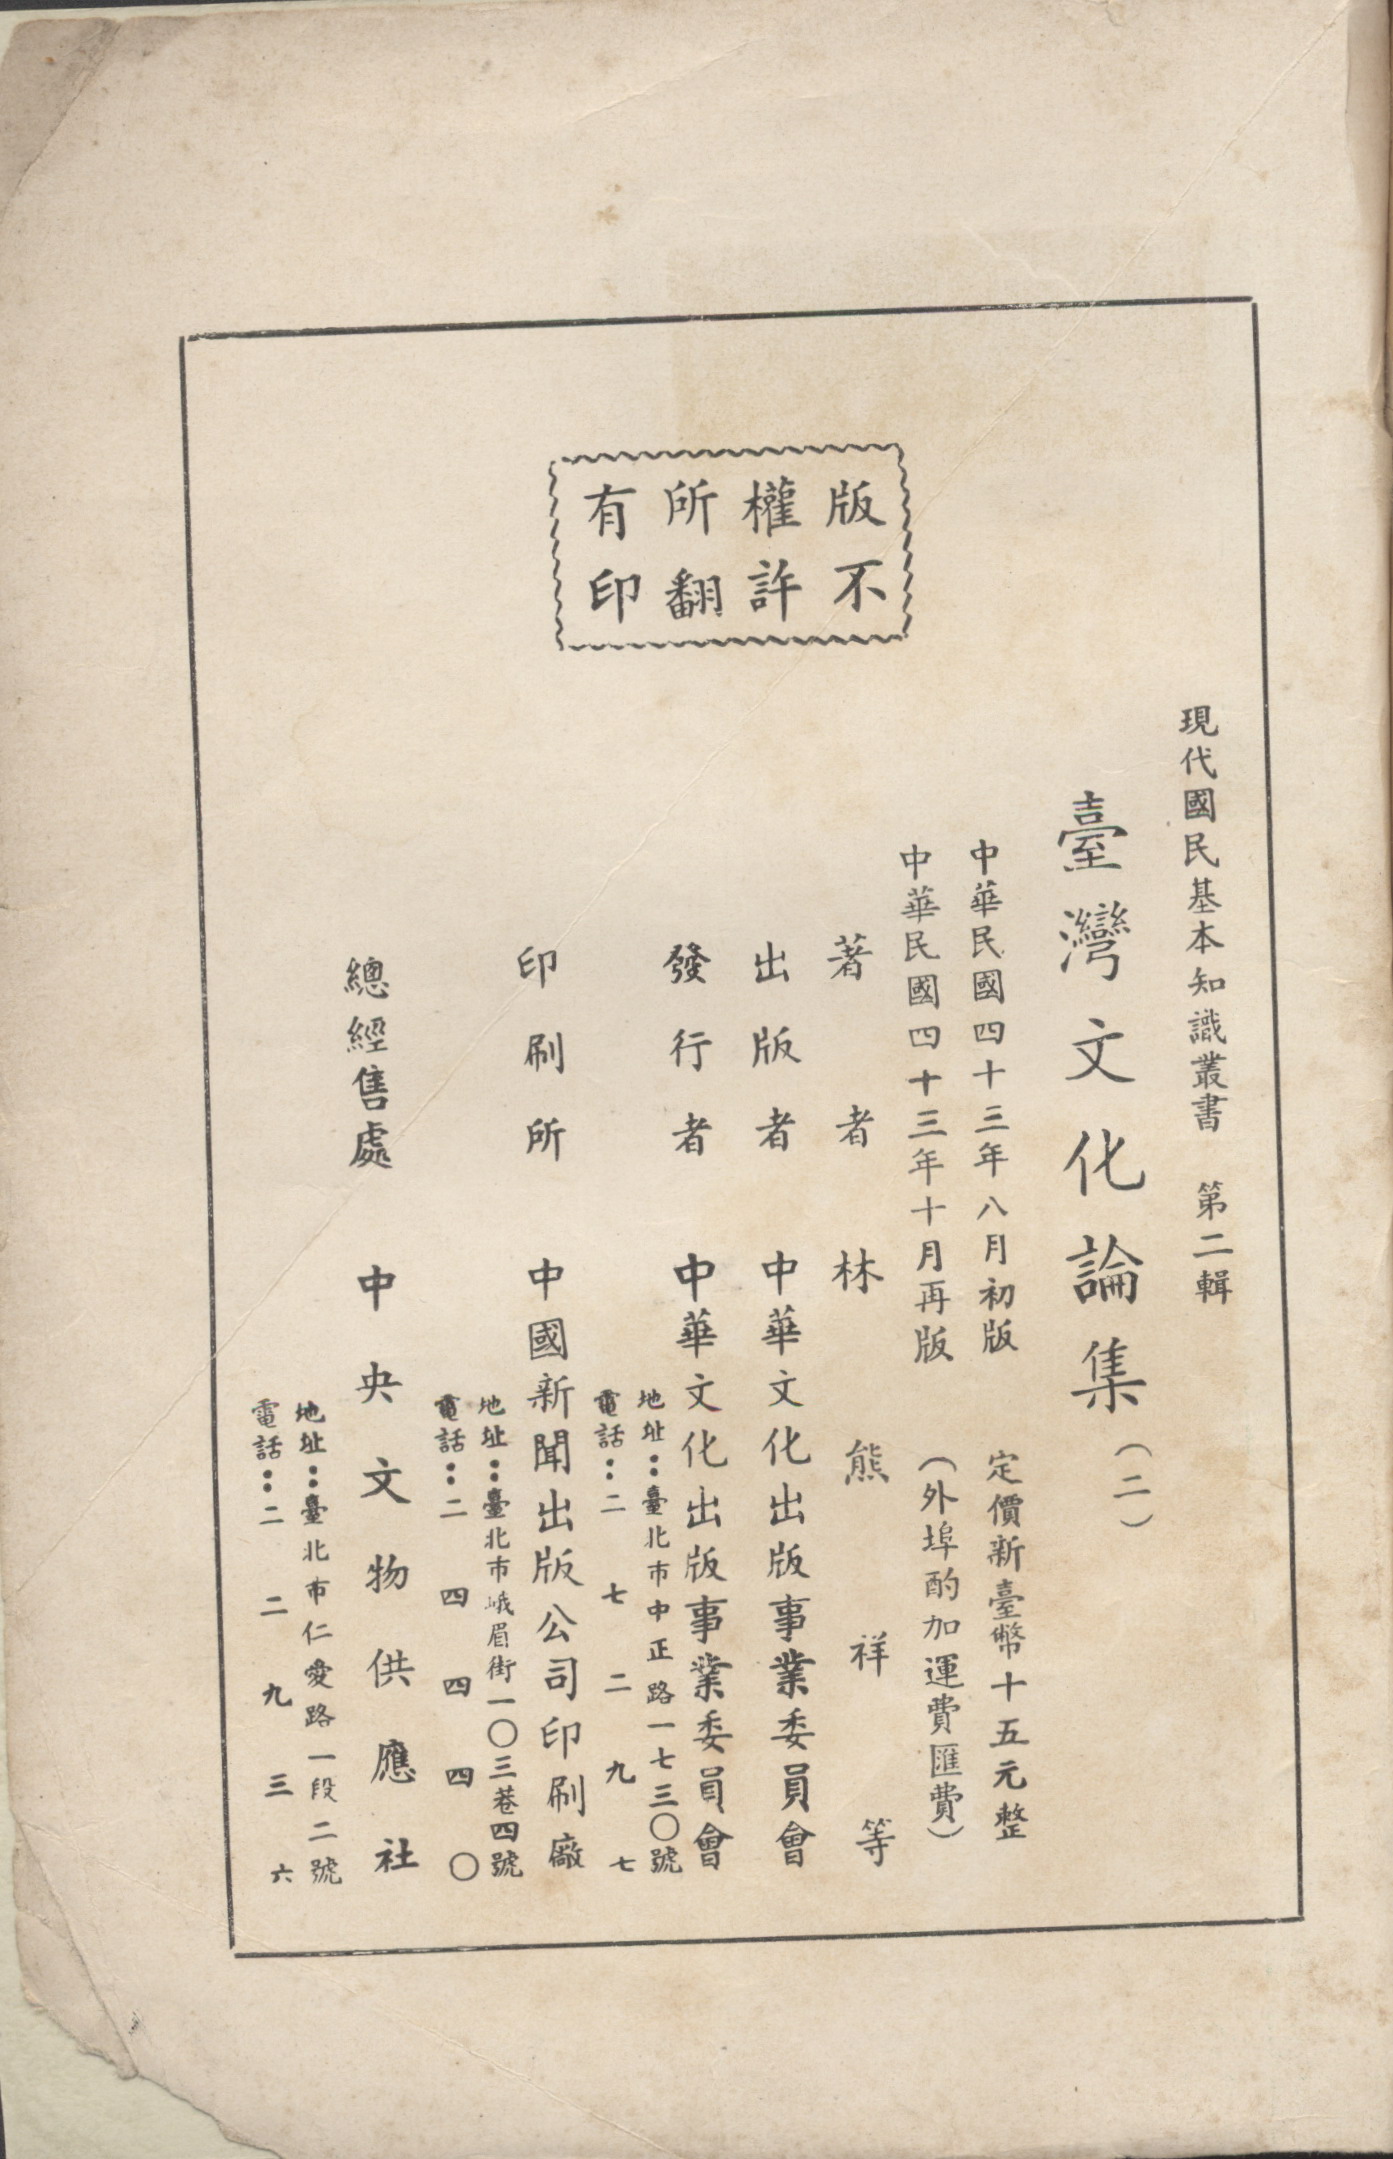 現代國民基本知識叢書　第二輯
臺灣文化論集（二）
中華民國四十三年八月初版
中華民國四十三年十月再版
定價新臺幣十五元整
（外埠酌加運費匯費）
著者　林熊祥等
出版者　中華文化出版事業委員會
發行者　中華文化出版事業委員會
地址：臺北市中正路一七三〇號
電話：二七二九七
印刷所　中國新聞出版公司印刷廠
地址：臺北市峨眉街一〇三巷四號
電話：二四四四〇
總經售處　中央文物供應社
地址：臺北市仁愛路一段二號
電話：二二九三六
版權所有
不許翻印